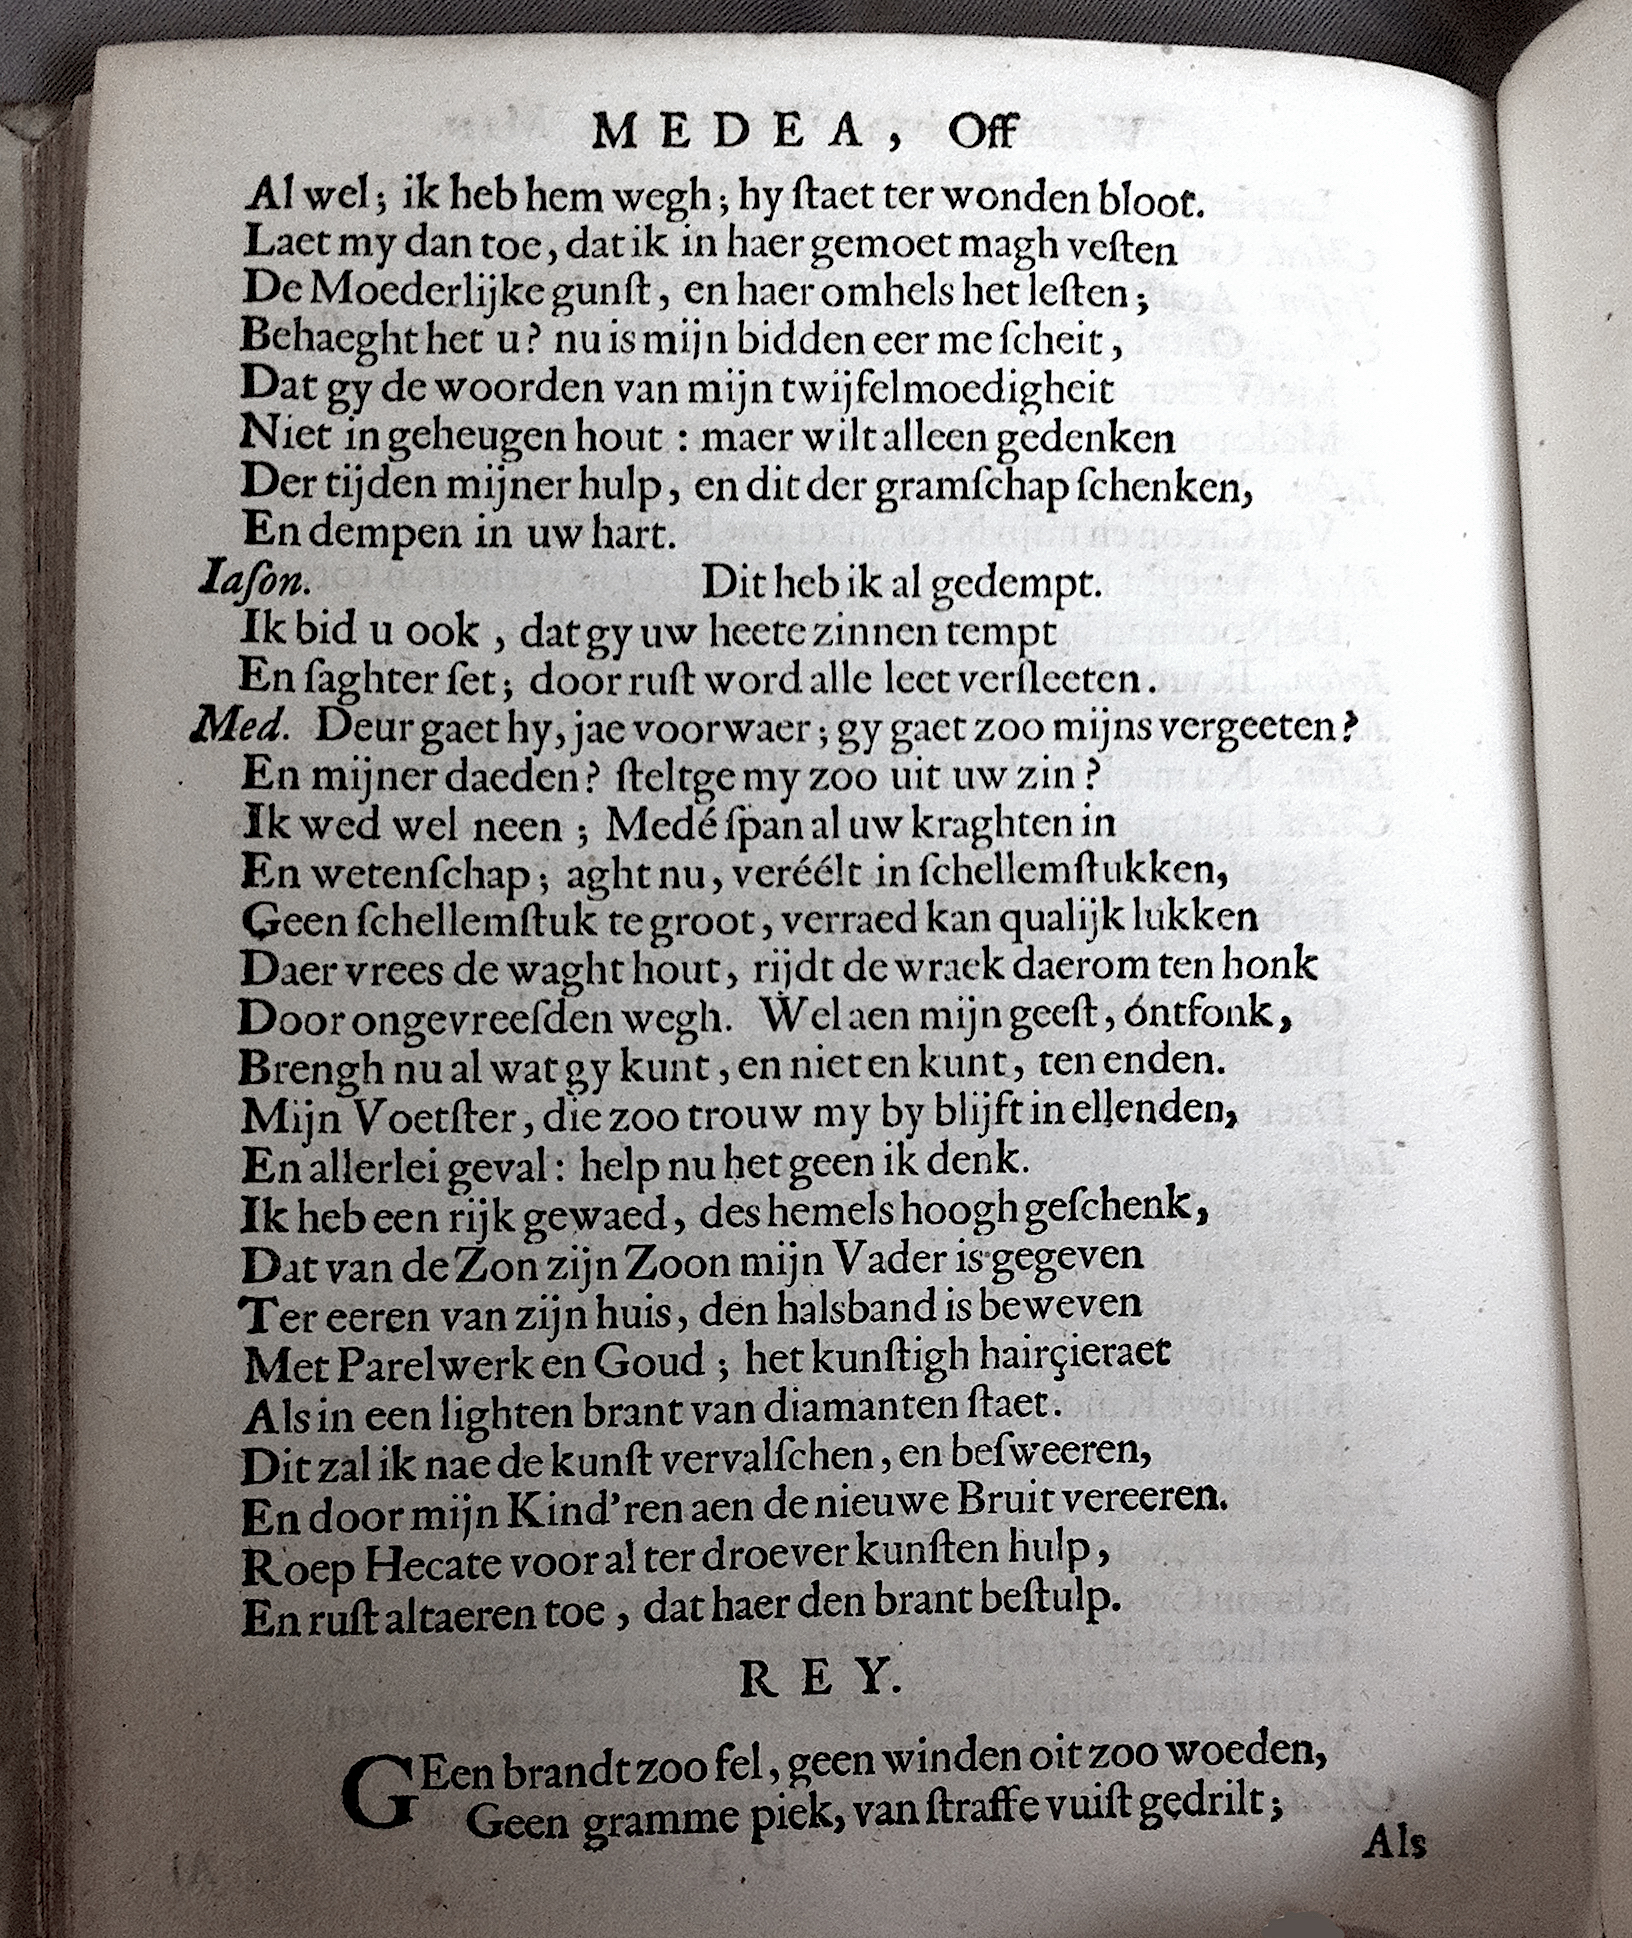 MEDEA, Off
Al wel; ik heb hem wegh; hy ſtaet ter wonden bloot.
Laet my dan toe, dat ik in haer gemoet magh veſten
De Moederlijke gunſt, en haer omhels het leſten;
Behaeght het u? nu is mijn bidden eer me ſcheit,
Dat gy de woorden van mijn twijfelmoedigheit
Niet in geheugen hout : maer wilt alleen gedenken
Der tijden mijner hulp, en dit der gramſchap ſchenken,
En dempen in uw hart.
Iaſon. Dit heb ik al gedempt.
Ik bid u ook , dat gy uw heete zinnen tempt
En ſaghter ſet; door ruſt word alle leet verſleeten.
Med. Deur gaet hy, jae voorwaer; gy gaet zoo mijns vergeeten?
En mijner daeden? ſteltge my zoo uit uw zin?
Ik wed wel neen ; Medé ſpan al uw kraghten in
En wetenſchap; aght nu, veréélt in ſchellemſtukken,
Geen ſchellemſtuk te groot, verraed kan qualijk lukken
Daer vrees de waght hout, rijdt de wraek daerom ten honk
Door ongevreeſden wegh. Wel aen mijn geeſt, óntfonk,
Brengh nu al wat gy kunt, en niet en kunt, ten enden.
Mijn Voetſter, die zoo trouw my by blijft in ellenden,
En allerlei geval: help nu het geen ik denk.
Ik heb een rijk gewaed, des hemels hoogh geſchenk,
Dat van de Zon zijn Zoon mijn Vader is gegeven
Ter eeren van zijn huis, den halsband is beweven
Met Parelwerk en Goud ; het kunſtigh hairçieraet
Als in een lighten brant van diamanten ſtaet.
Dit zal ik nae de kunſt vervalſchen, en beſweeren,
En door mijn Kind'ren aen de nieuwe Bruit vereeren.
Roep Hecate voor al ter droever kunſten hulp,
En ruſt altaeren toe , dat haer den brant beſtulp.
REY.
GEen brandt zoo fel, geen winden oit zoo woeden,
Geen gramme piek, van ſtraffe vuiſt gedrilt;
Als